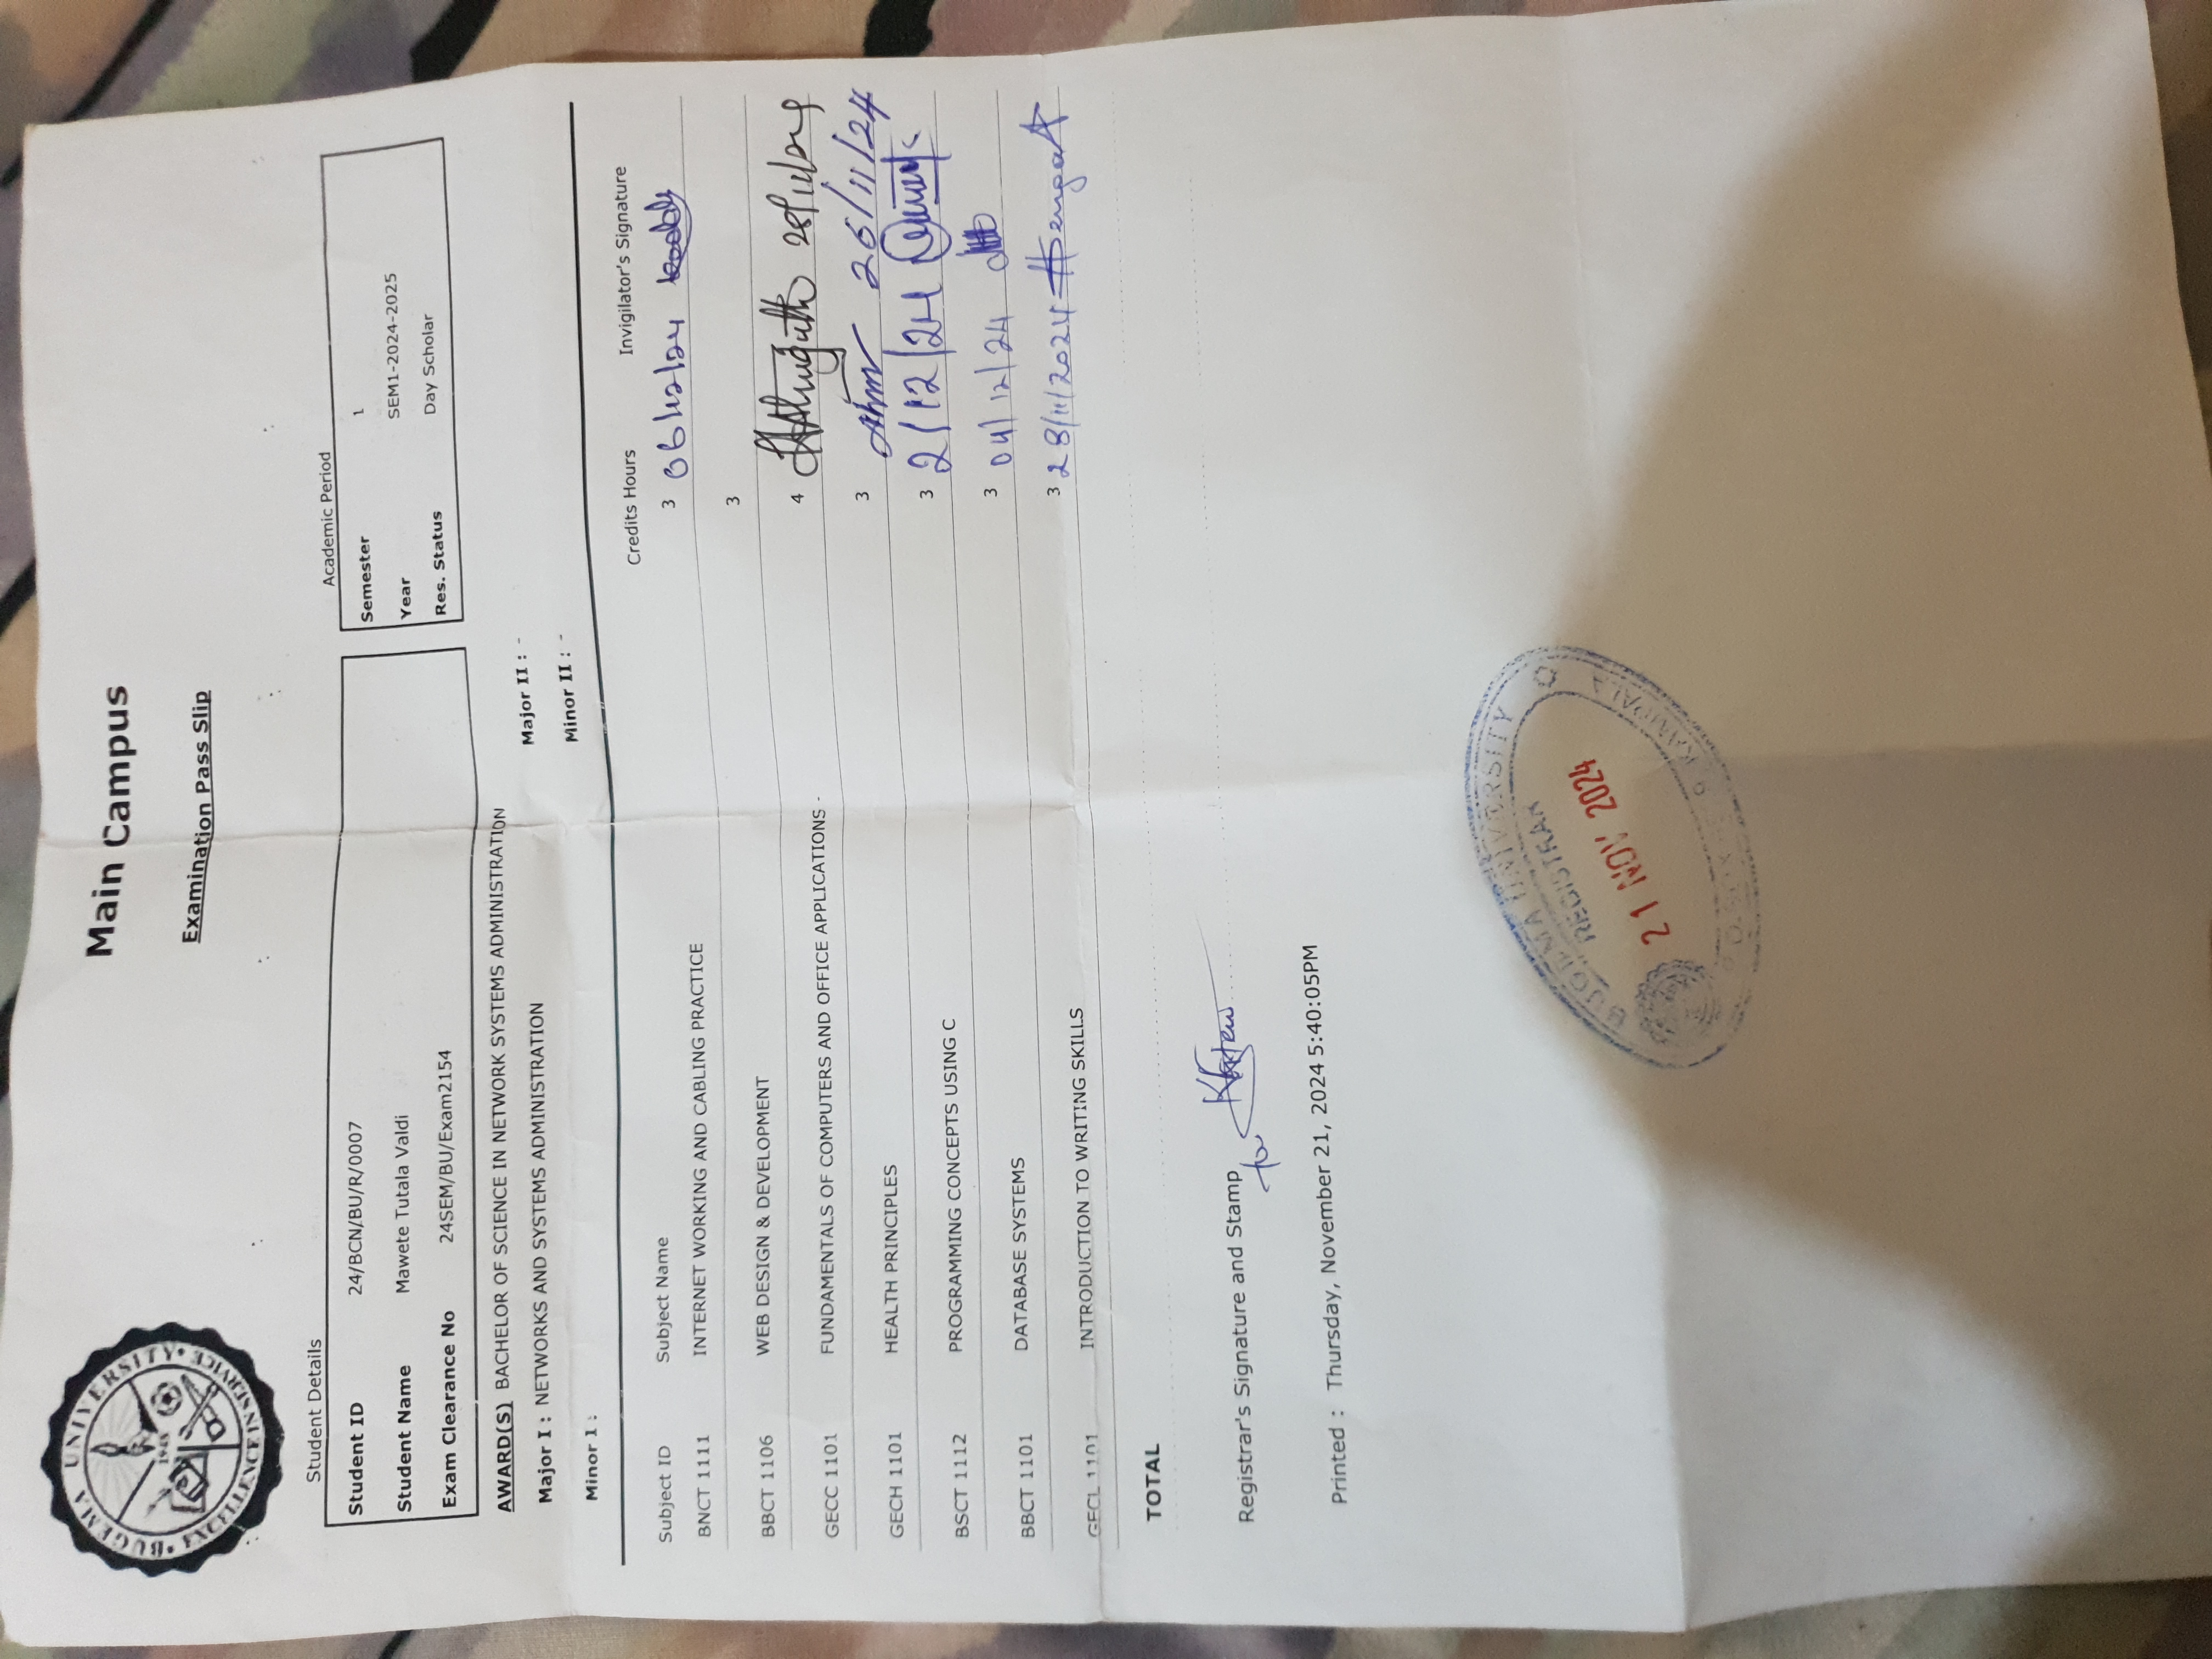 BUGEMA UNIVERSITY
1948
EXCELLENCE IN SERVICE
Main Campus
Examination Pass Slip
Student Details
Student ID 24/BCN/BU/R/0007
Student Name Mawete Tutala Valdi
Exam Clearance No 24SEM/BU/Exam2154
Academic Period
Semester 1
Year SEM1-2024-2025
Res. Status Day Scholar
AWARD(S) BACHELOR OF SCIENCE IN NETWORK SYSTEMS ADMINISTRATION
Major I : NETWORKS AND SYSTEMS ADMINISTRATION Major II : -
Minor 1 : Minor II : -
Subject ID Subject Name Credits Hours Invigilator's Signature
BNCT 1111 INTERNET WORKING AND CABLING PRACTICE 3 06/12/24
BBCT 1106 WEB DESIGN & DEVELOPMENT 3
GECC 1101 FUNDAMENTALS OF COMPUTERS AND OFFICE APPLICATIONS - 4
GECH 1101 HEALTH PRINCIPLES 3 26/11/24
BSCT 1112 PROGRAMMING CONCEPTS USING C 3 2/12/24
BBCT 1101 DATABASE SYSTEMS 3 04/12/24
GECL 1101 INTRODUCTION TO WRITING SKILLS 3 28/11/2024
TOTAL
Registrar's Signature and Stamp
Printed : Thursday, November 21, 2024 5:40:05PM
BUGEMA UNIVERSITY
REGISTRAR
21 NOV 2024
KAMPALA